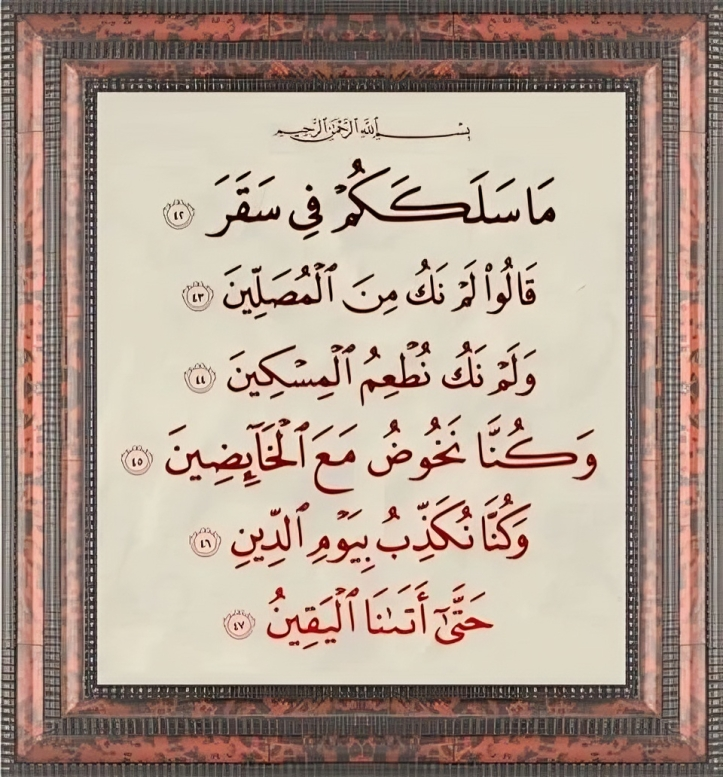 بِسۡمِ ٱللَّهِ ٱلرَّحۡمَٰنِ ٱلرَّحِيمِ
مَا سَلَكَكُمۡ فِي سَقَرَ ٤٢
قَالُواْ لَمۡ نَكُ مِنَ ٱلۡمُصَلِّينَ ٤٣
وَلَمۡ نَكُ نُطۡعِمُ ٱلۡمِسۡكِينَ ٤٤
وَكُنَّا نَخُوضُ مَعَ ٱلۡخَآئِضِينَ ٤٥
وَكُنَّا نُكَذِّبُ بِيَوۡمِ ٱلدِّينِ ٤٦
حَتَّىٰٓ أَتَىٰنَا ٱلۡيَقِينُ ٤٧